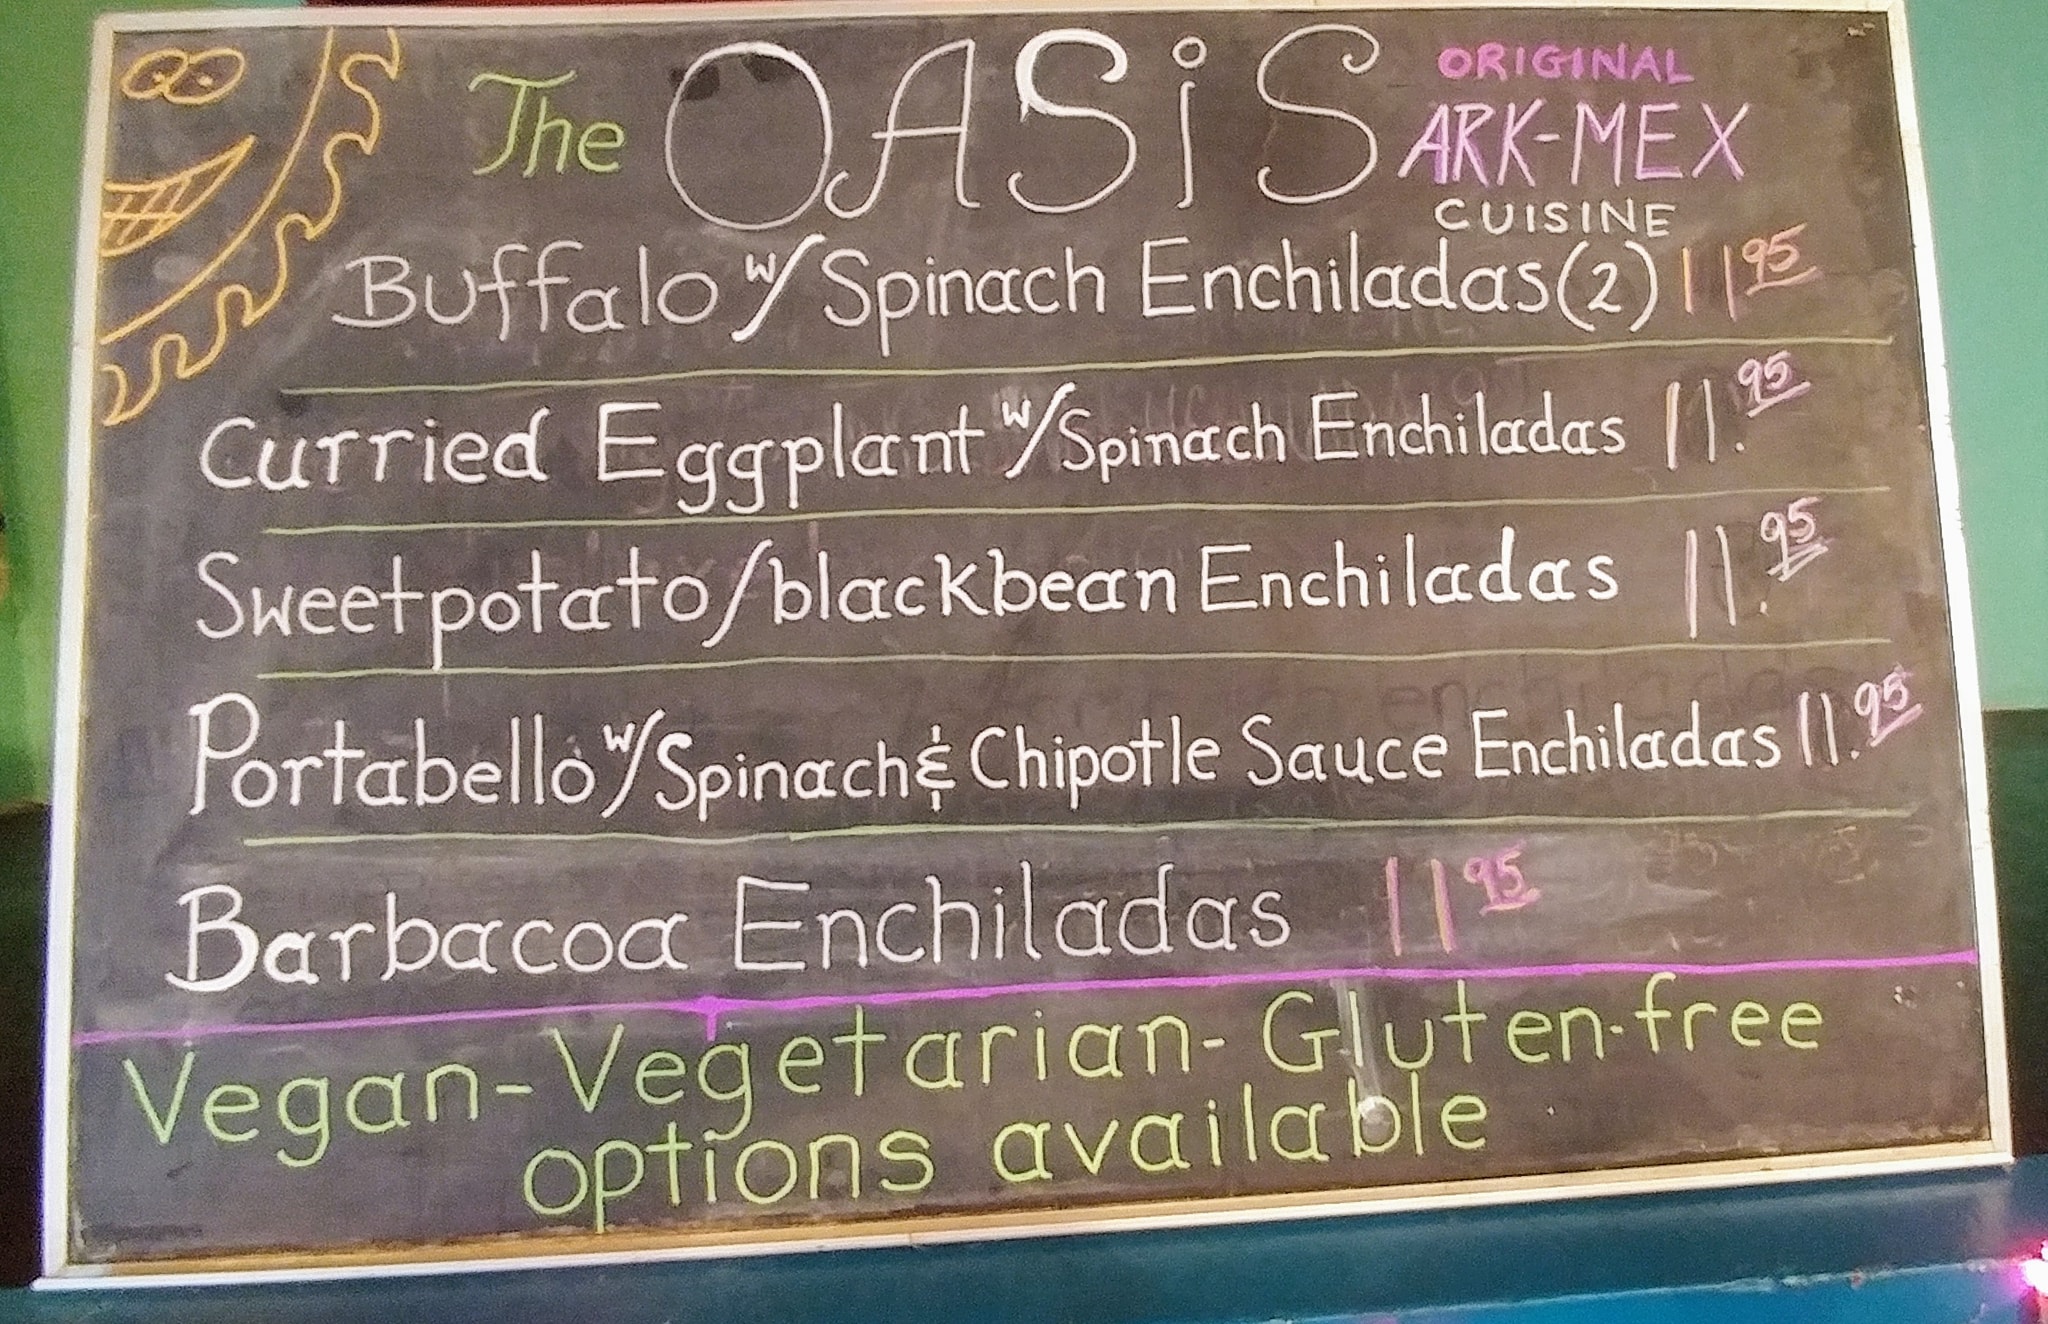 The OASiS
ORIGINAL
ARK-MEX
CUISINE
Buffalo w/ Spinach Enchiladas (2) 11 95
Curried Eggplant w/ Spinach Enchiladas 11.95
Sweetpotato/blackbean Enchiladas 11.95
Portabello w/ Spinach & Chipotle Sauce Enchiladas 11.95
Barbacoa Enchiladas 11 95
Vegan-Vegetarian-Gluten-free
options available